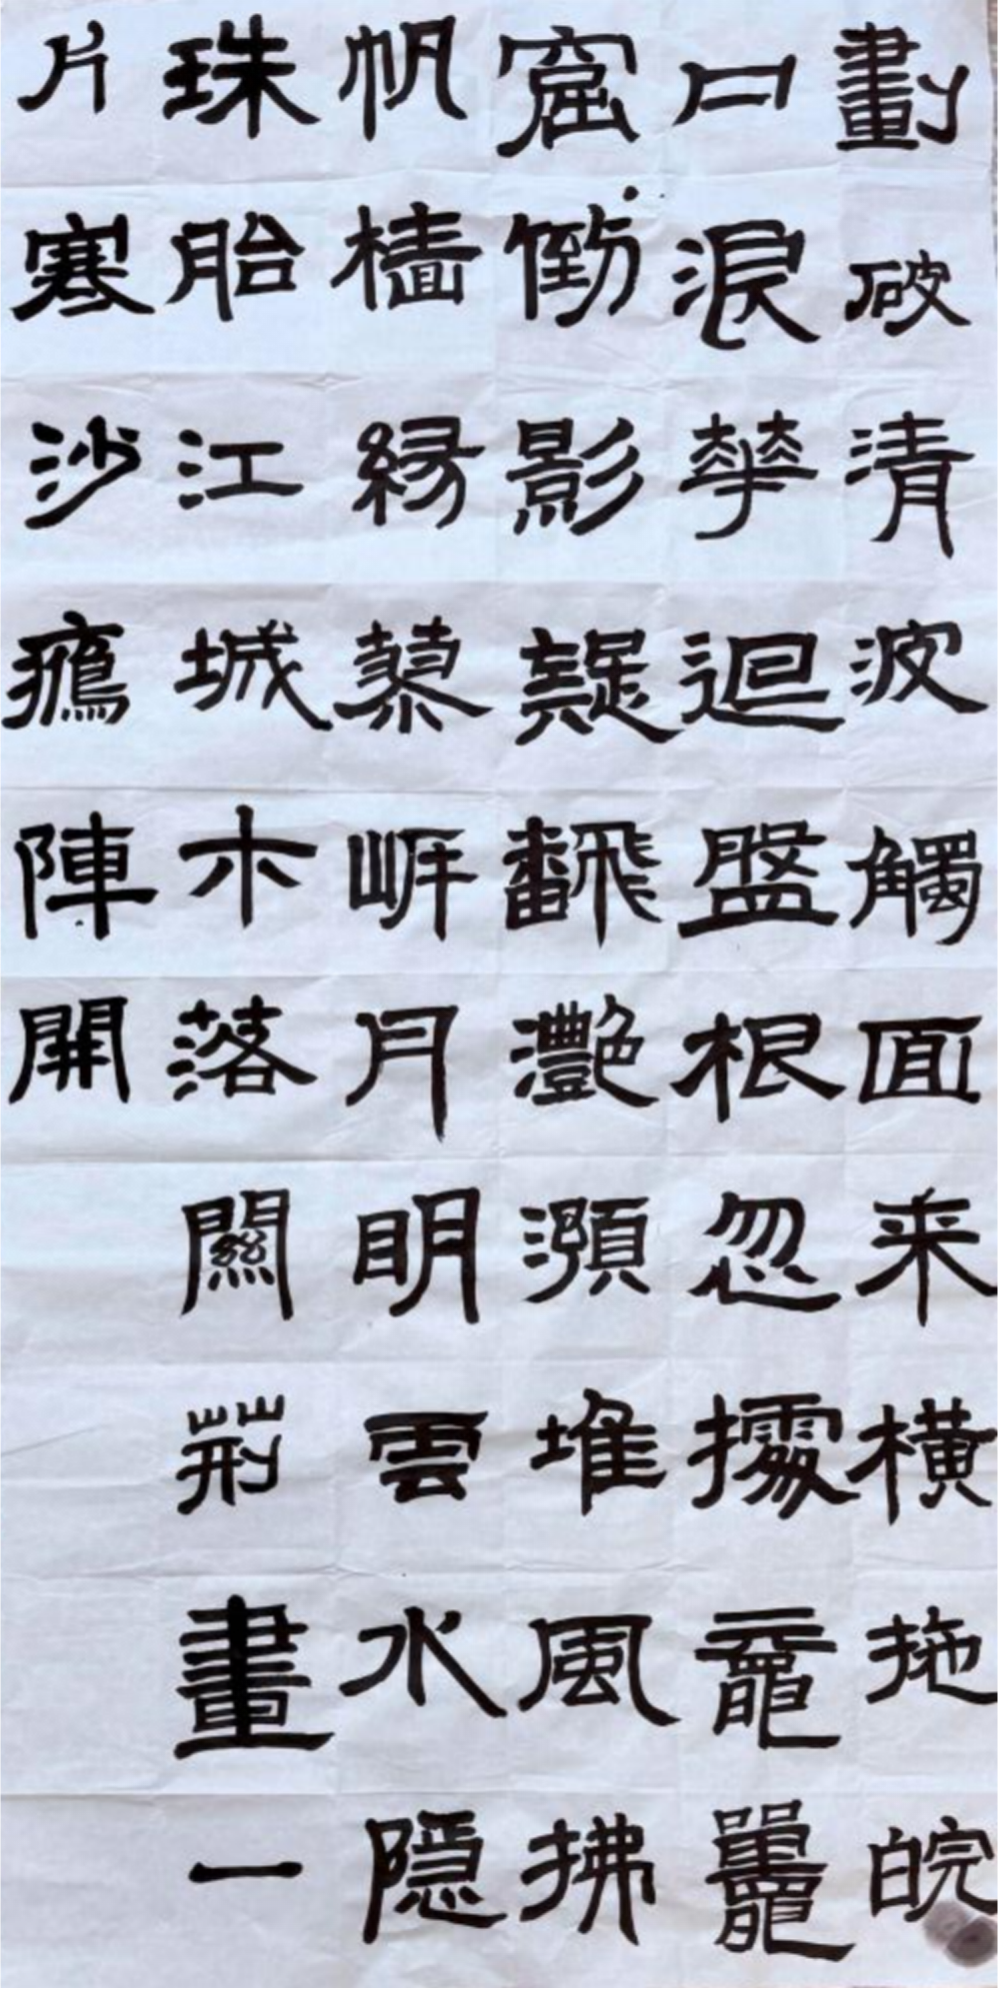 劃破清波觸面来横拖皖
口浪華迴盤根忽據黿鼉
窟倒影疑飜灧澦堆風拂
帆檣緣蓼岸月明雲水隱
珠胎江城木落關荊畫一
片寒沙鴈陣開